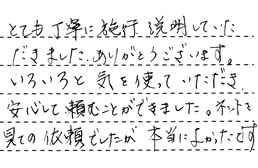 とても丁寧に施行、説明していた
だきました。ありがとうございます。
いろいろと気を使っていただき、
安心して頼むことができました。ネットを
見ての依頼でしたが本当によかったです